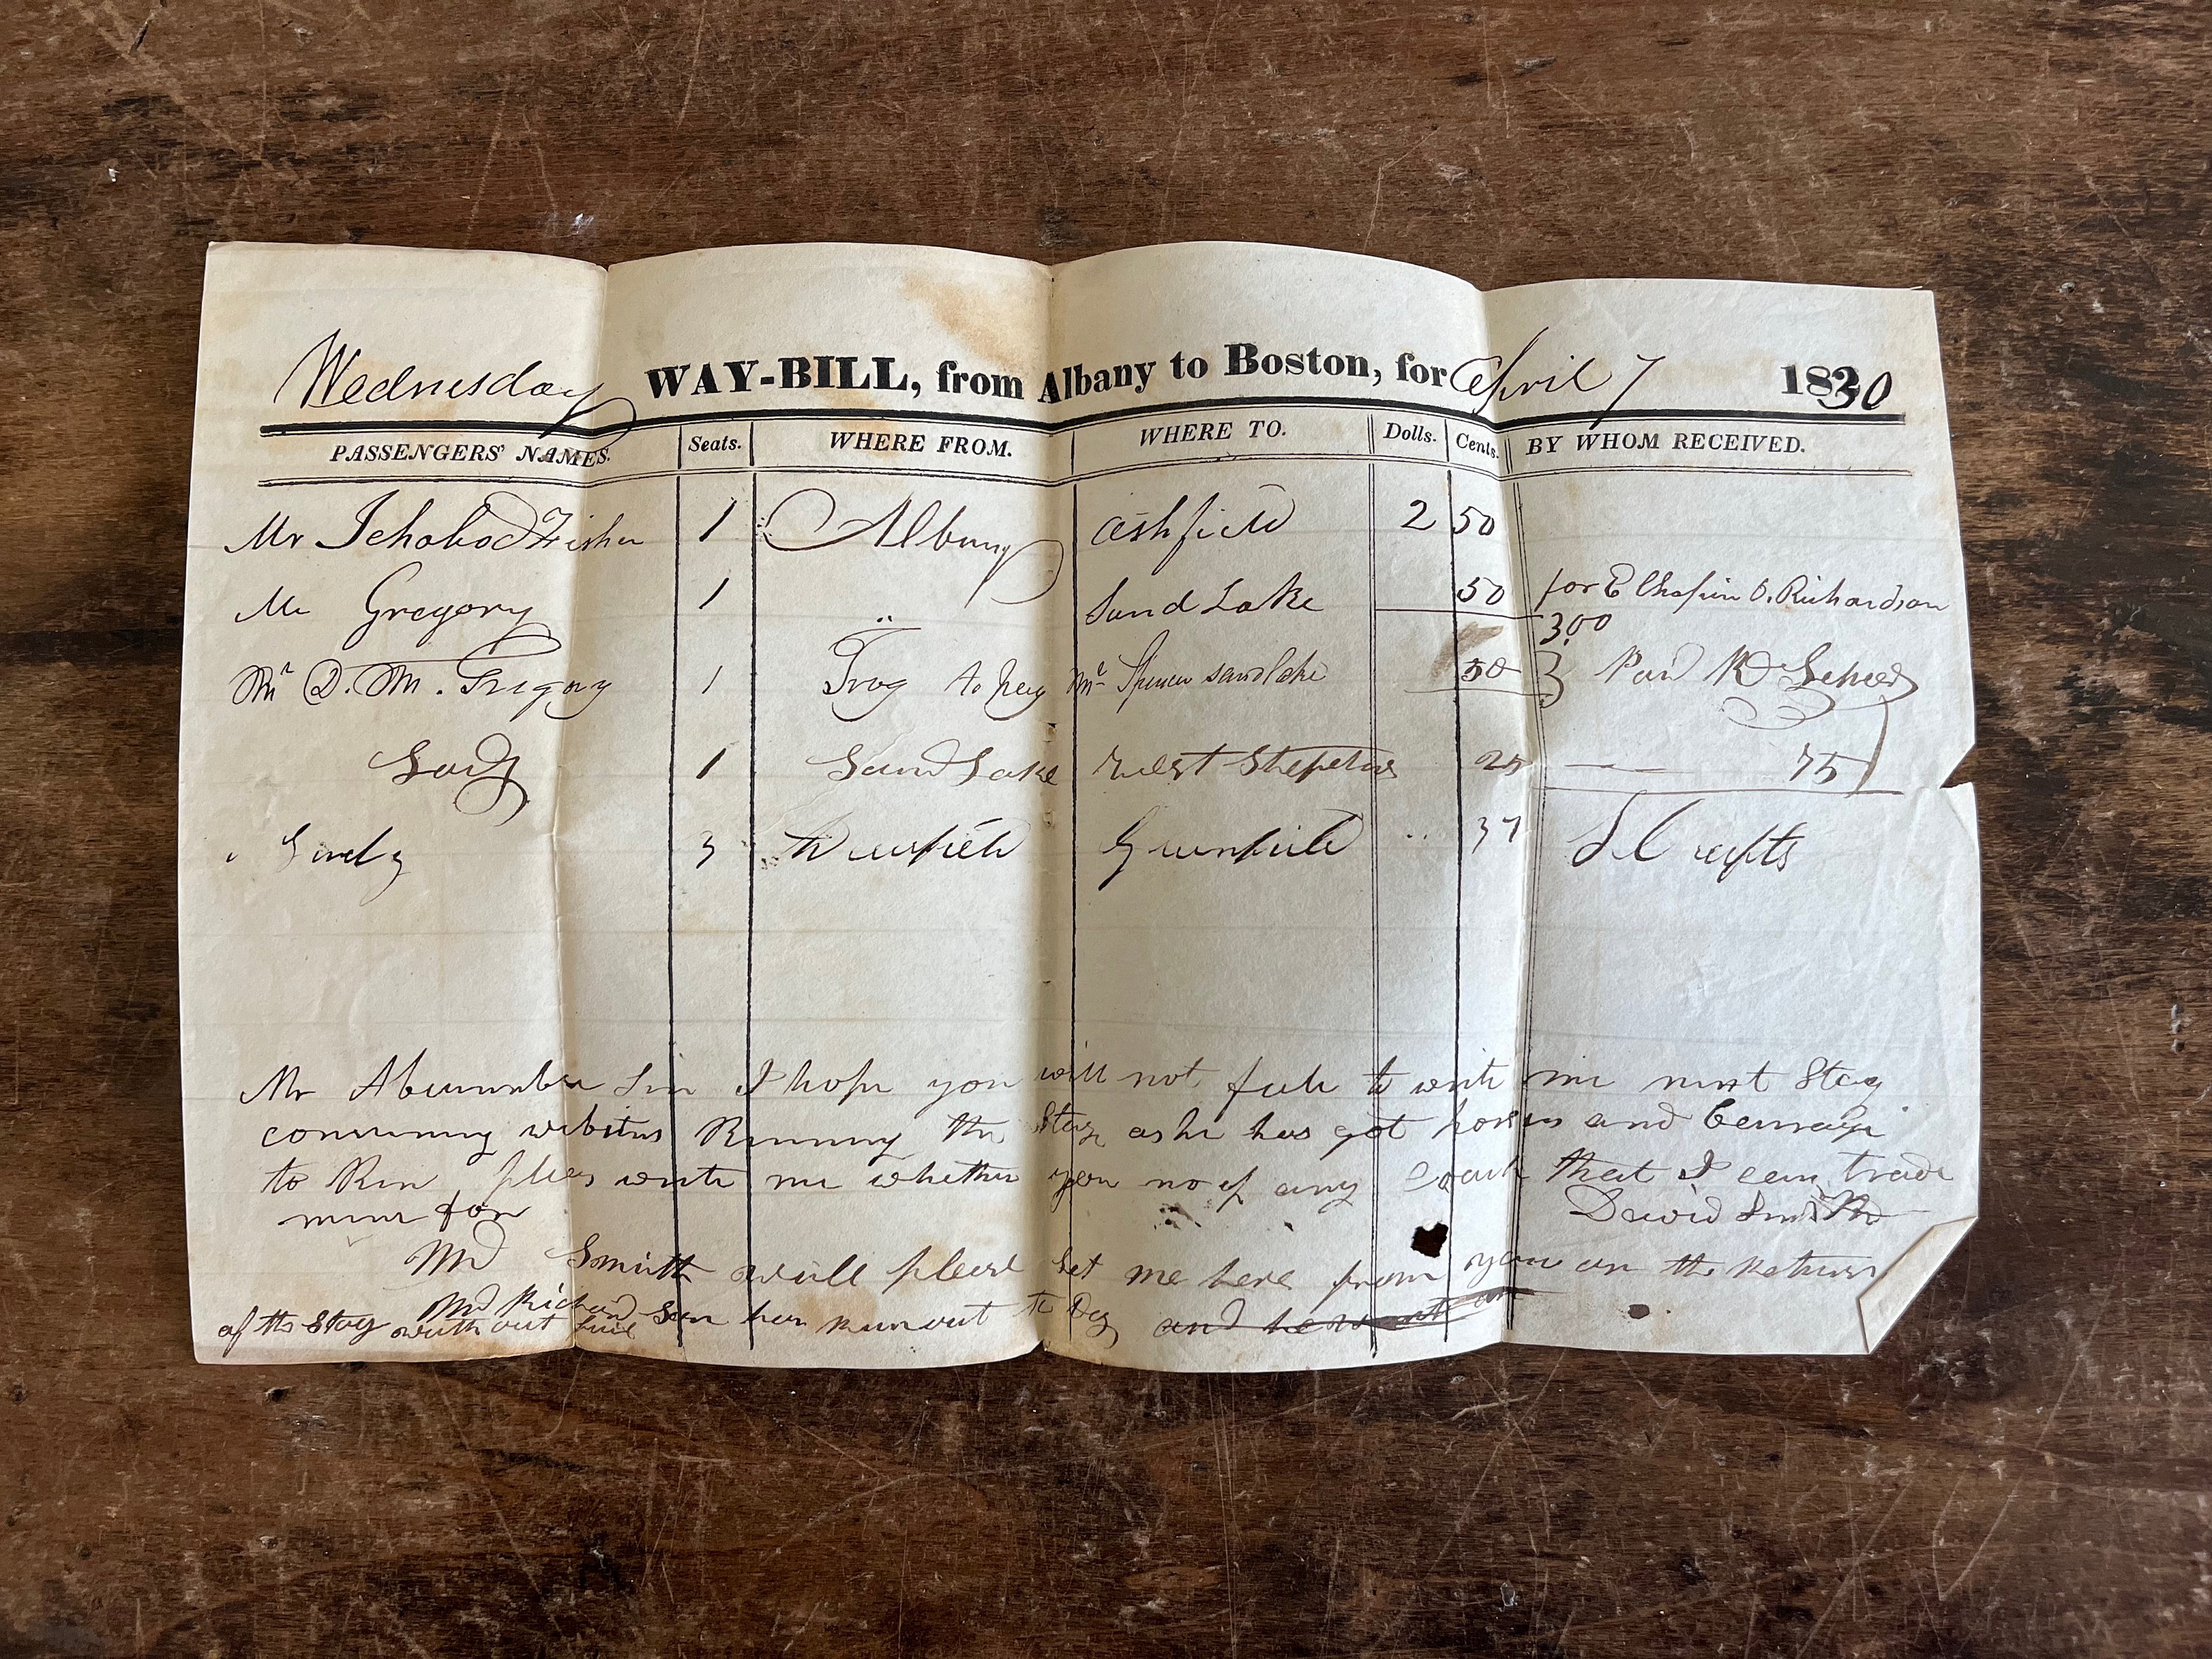 Wednesday WAY-BILL, from Albany to Boston, for April 7 1830
PASSENGERS' NAMES. Seats. WHERE FROM. WHERE TO. Dolls. Cents. BY WHOM RECEIVED.
Mr Ichabod Fisher 1 Albany Ashfield 2 50
Mr Gregory 1 " Sand Lake 50 for E Chapin O. Richardson
3,00
Mr D. M. Gregory 1 Troy to pay Mr Spencer sand lake 50 Paid
Lady 1 Sand Lake West 25 — 75
3 Deerfield Greenfield .. 37 S Crafts
Mr Sir I hope you will not fale to write me next Stag
Running the Stage as he has got horses and
to Run pleas write me whether you no of any Coach that I can trade
mine for David Smith
Md Smith will pleas let me here from you on the Return
of the Stag Md Richardson has Run out to Day and he
without